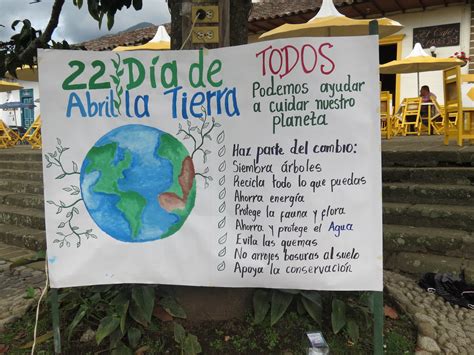 22 Día de
Abril la Tierra
TODOS
Podemos ayudar
a cuidar nuestro
planeta
Haz parte del cambio:
✓ Siembra árboles
✓ Recicla todo lo que puedas
✓ Ahorra energía
✓ Protege la fauna y flora
✓ Ahorra y protege el Agua
✓ Evita las quemas
✓ No arrojes basuras al suelo
✓ Apoya la conservación